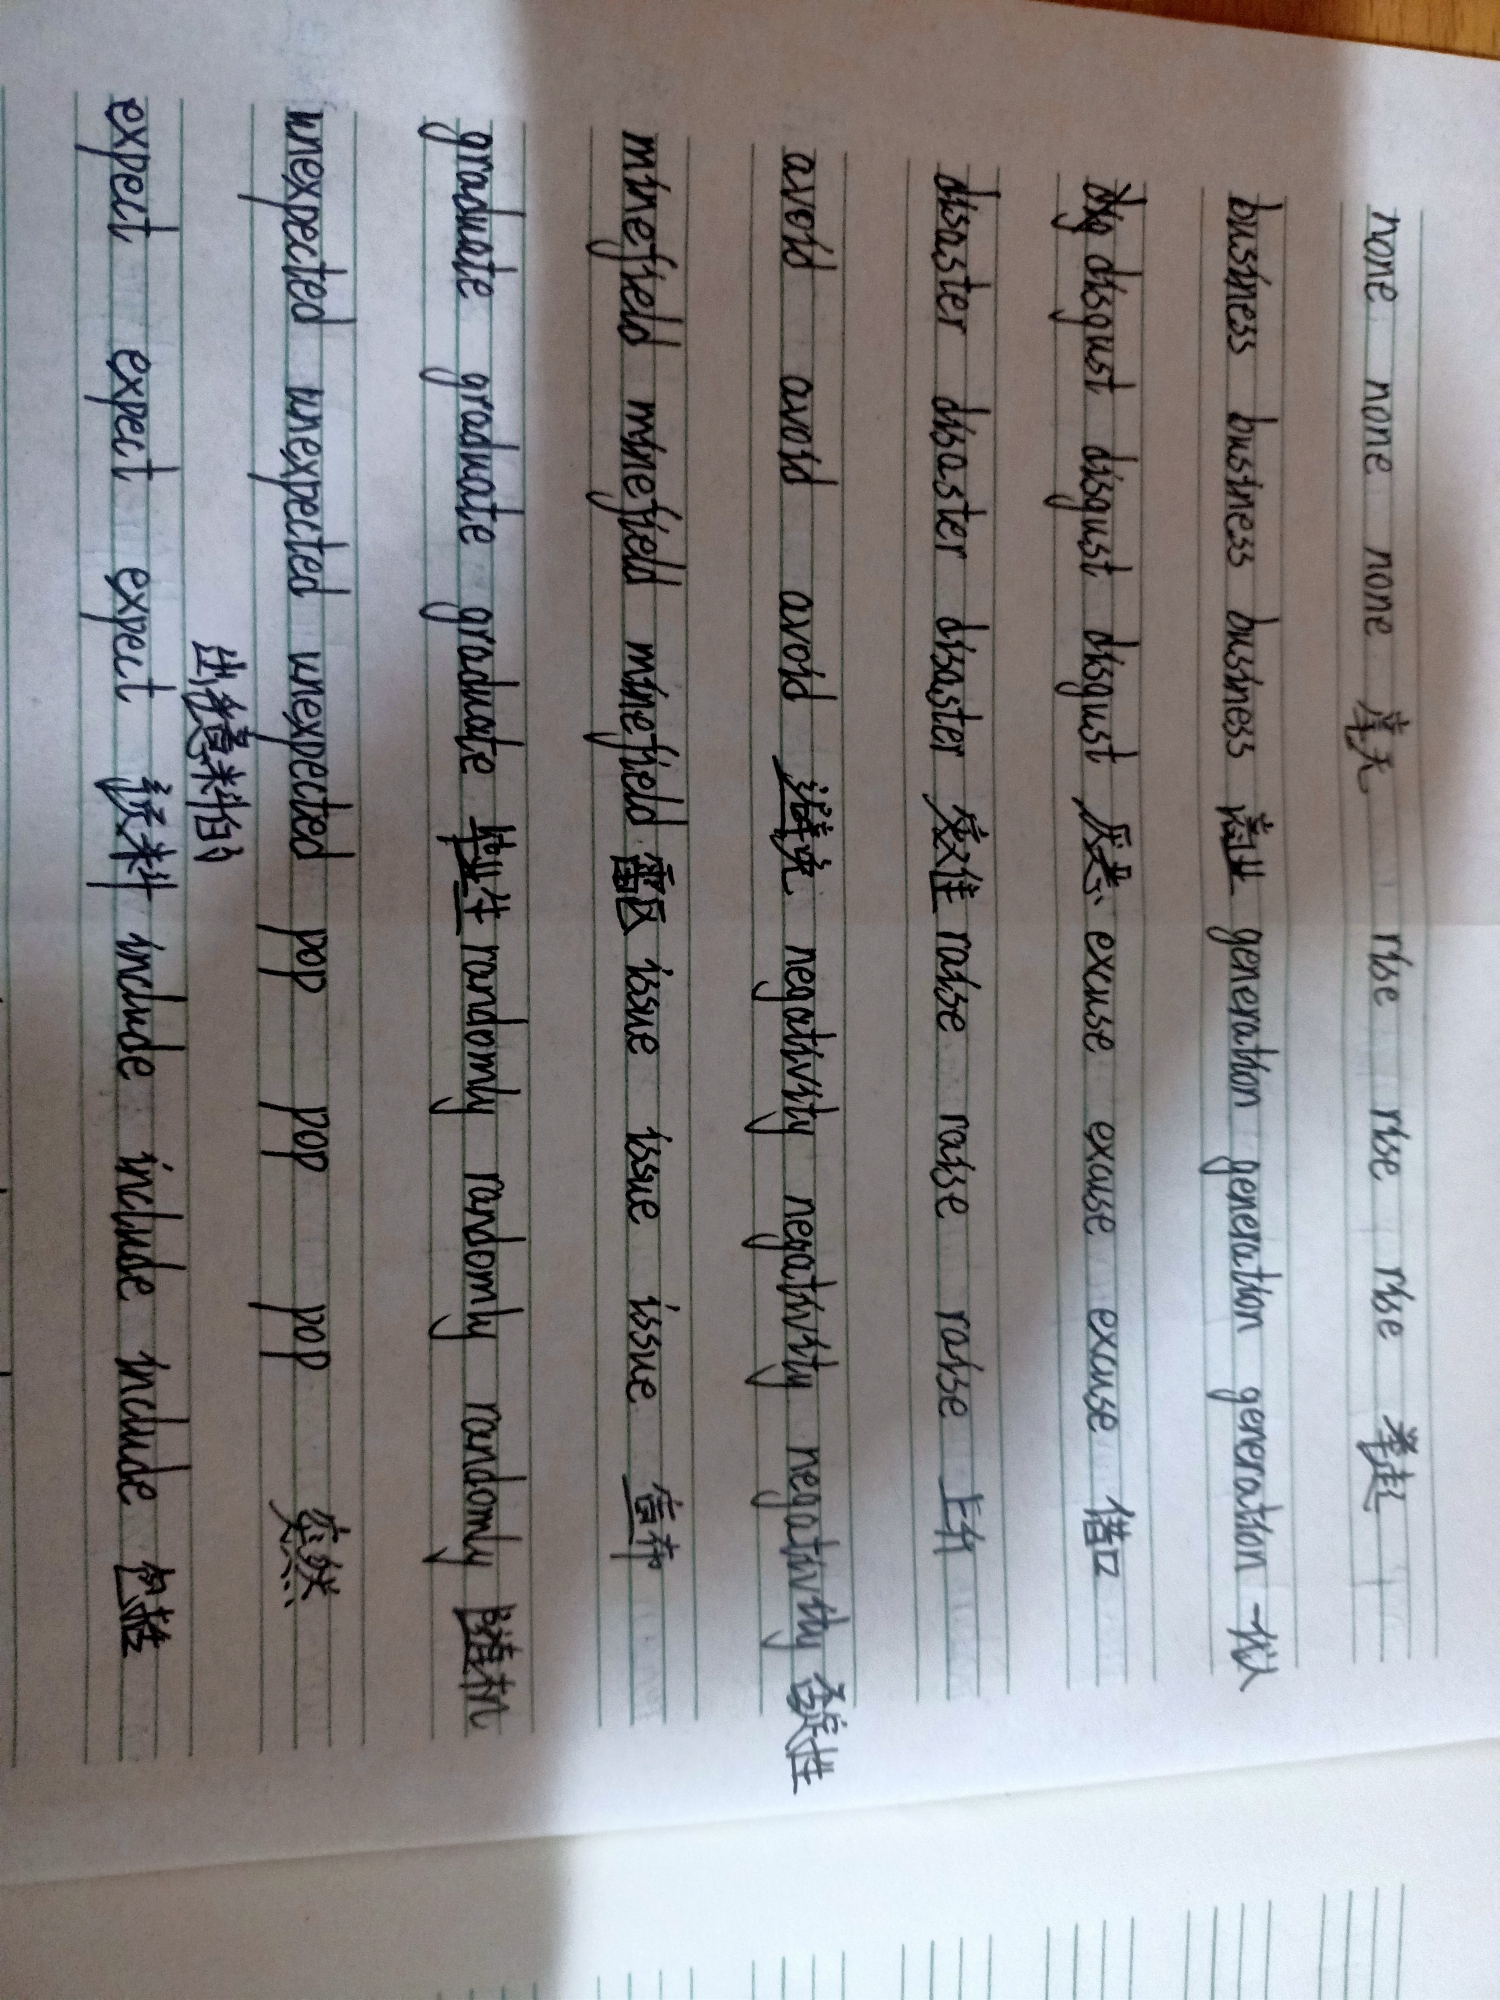 none none none 毫无 rise rise rise 举起
business business business 商业 generation generation generation 一代人
disgust disgust disgust excuse excuse excuse 借口
disaster disaster disaster raise raise raise 上升
avoid avoid avoid 避免 negativity negativity negativity 否定性
minefield minefield minefield 雷区 issue issue issue 宣布
graduate graduate graduate 毕业生 randomly randomly randomly 随机
unexpected unexpected unexpected pop pop pop 突然
出乎意料的
expect expect expect include include include 包括